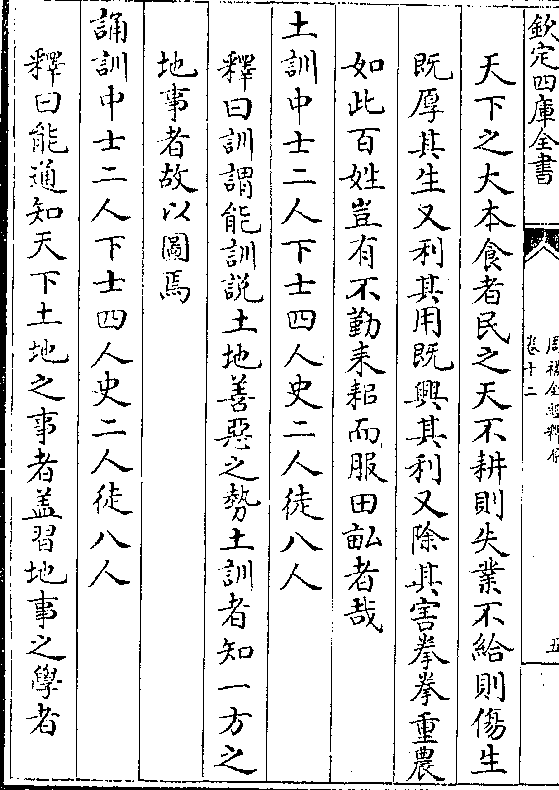 欽定四庫全書
周禮全經釋原
卷十二
五
天下之大本食者民之天不耕則失業不給則傷生
既厚其生又利其用既興其利又除其害拳拳重農
如此百姓豈有不勤耒耜而服田畝者哉
土訓中士二人下士四人史二人徒八人
釋曰訓謂能訓説土地善惡之勢土訓者知一方之
地事者故以圖焉
誦訓中士二人下士四人史二人徒八人
釋曰能通知天下土地之事者盖習地事之學者